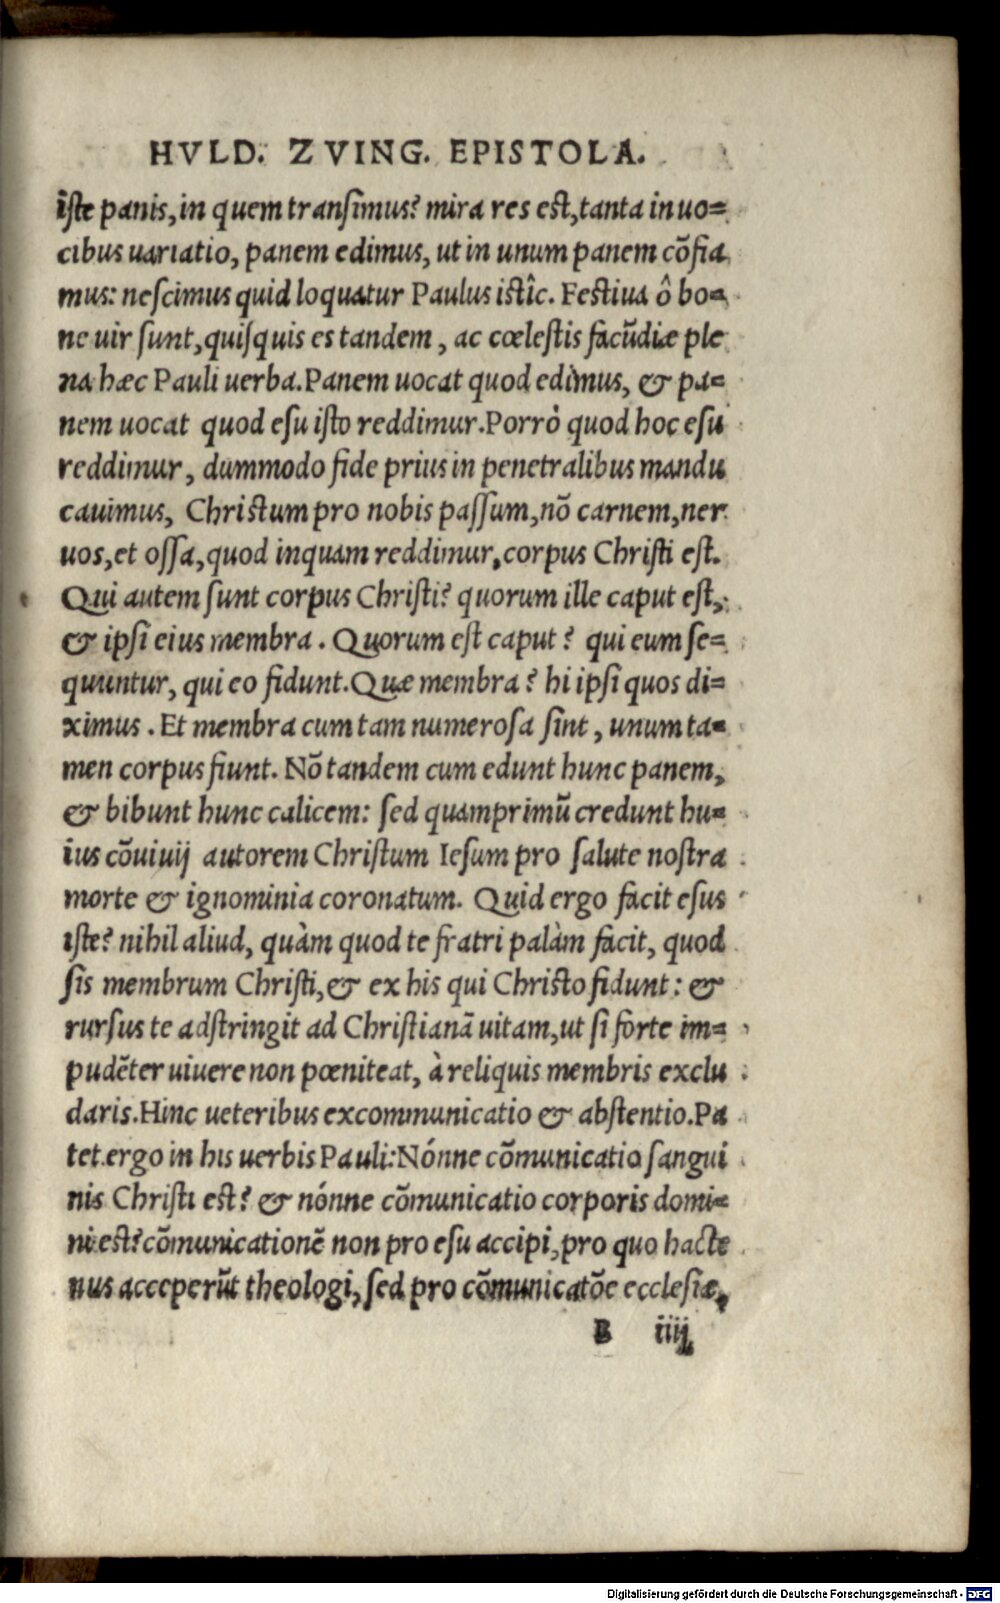 HVLD. ZVING. EPISTOLA.
iste panis, in quem transimus? mira res est, tanta in uo=
cibus uariatio, panem edimus, ut in unum panem cõfia
mus: nescimus quid loquatur Paulus istîc. Festiua ô bo=
ne uir sunt, quisquis es tandem, ac cœlestis facũdiæ ple
na hæc Pauli uerba. Panem uocat quod edimus, & pa=
nem uocat quod esu isto reddimur. Porrò quod hoc esu
reddimur, dummodo fide prius in penetralibus mandu
cauimus, Christum pro nobis passum, nõ carnem, ner
uos, et ossa, quod inquam reddimur, corpus Christi est.
Qui autem sunt corpus Christi? quorum ille caput est,
& ipsi eius membra. Quorum est caput? qui eum se=
quuntur, qui eo fidunt. Quæ membra? hi ipsi quos di=
ximus. Et membra cum tam numerosa sint, unum ta=
men corpus fiunt. Nõ tandem cum edunt hunc panem,
& bibunt hunc calicem: sed quamprimũ credunt hu=
ius cõuiuij autorem Christum Iesum pro salute nostra
morte & ignominia coronatum. Quid ergo facit esus
iste? nihil aliud, quàm quod te fratri palàm facit, quod
sis membrum Christi, & ex his qui Christo fidunt: &
rursus te adstringit ad Christianã uitam, ut si forte im=
pudẽter uiuere non pœniteat, à reliquis membris exclu
daris. Hinc ueteribus excommunicatio & abstentio. Pa
tet ergo in his uerbis Pauli: Nónne cõmunicatio sangui
nis Christi est? & nónne cõmunicatio corporis domi=
ni est? cõmunicationẽ non pro esu accipi, pro quo hacte
nus acceperũt theologi, sed pro cõmunicatõe ecclesiæ,
B iiij
Digitalisierung gefördert durch die Deutsche Forschungsgemeinschaft - DFG